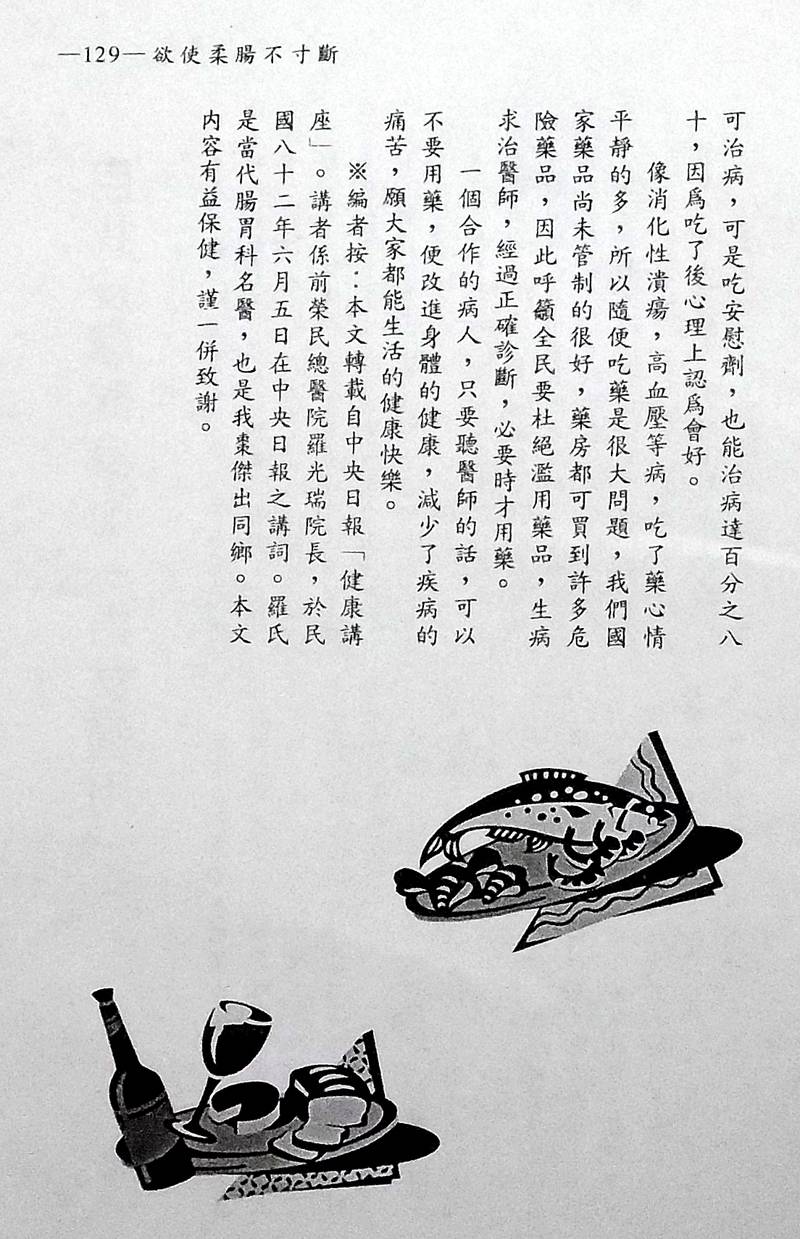 —129—欲使柔腸不寸斷
可治病，可是吃安慰劑，也能治病達百分之八
十，因爲吃了後心理上認爲會好。
像消化性潰瘍，高血壓等病，吃了藥心情
平靜的多，所以隨便吃藥是很大問題，我們國
家藥品尚未管制的很好，藥房都可買到許多危
險藥品，因此呼籲全民要杜絕濫用藥品，生病
求治醫師，經過正確診斷，必要時才用藥。
一個合作的病人，只要聽醫師的話，可以
不要用藥，便改進身體的健康，減少了疾病的
痛苦，願大家都能生活的健康快樂。
※編者按：本文轉載自中央日報「健康講
座」。講者係前榮民總醫院羅光瑞院長，於民
國八十二年六月五日在中央日報之講詞。羅氏
是當代腸胃科名醫，也是我棗傑出同鄉。本文
內容有益保健，謹一併致謝。